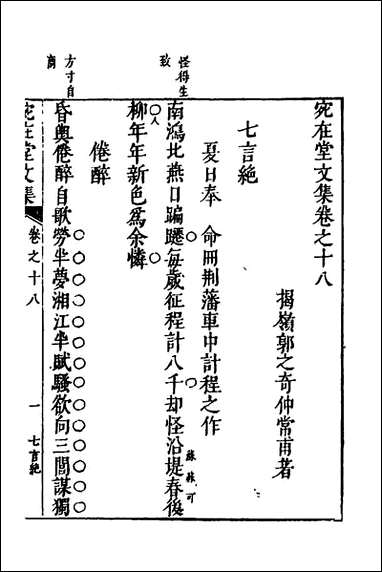 宛在堂文集卷之十八
揭嶺郭之奇仲常甫著
七言絕
夏日奉 命冊荆藩車中計程之作
南鴻北燕日蹁躚每歲征程計八千却怪沿堤春後
柳年年新色爲余憐
倦醉
昏輿倦醉自歌勞半夢湘江半賦騷欲向三閭謀獨
怪得生
致
方寸自
蘇蘇可
人
宛在堂文集
卷之十八
一
七言絕